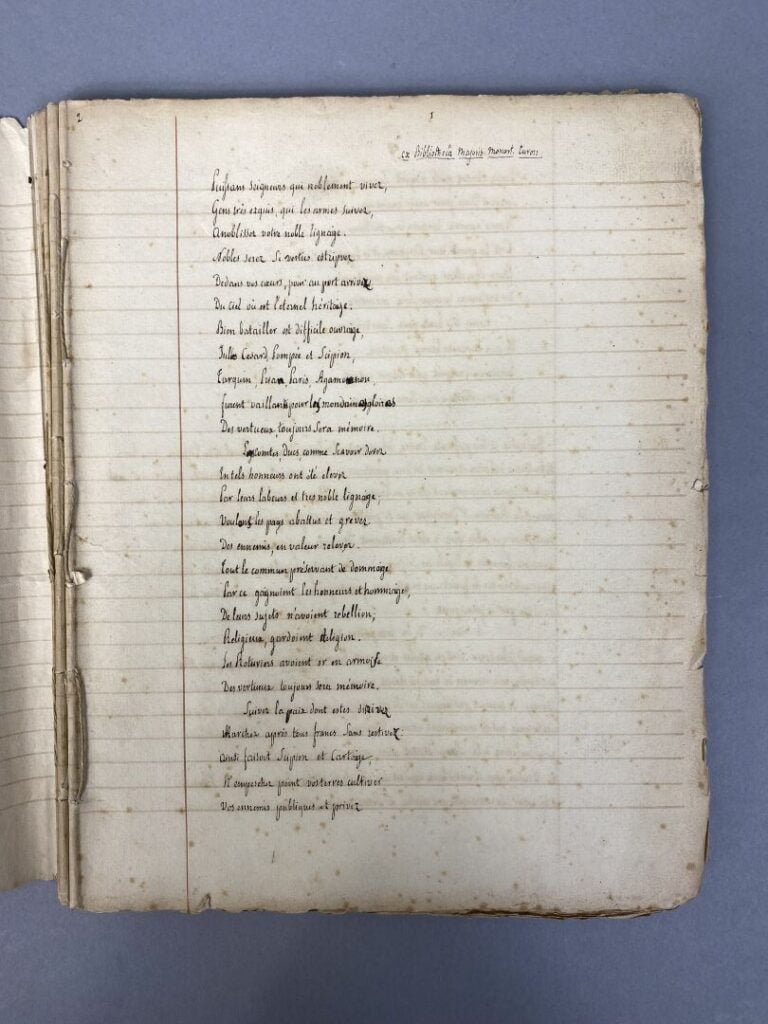 2
1
ex Bibliothecâ Majoris Monast. Turon.
Puissans seigneurs qui noblement vivez,
Gens très exquis, qui les armes suivez,
Anoblissez votre noble lignage.
Nobles serez Si vertus estrivez
Dedans vos cœurs, pour au port arrivez
Du Ciel où est l'eternel héritage.
Bien batailler est difficile ouvrage,
Julles Cesard, Pompée et Scipion,
Tarquin, Priam, Paris, Agamemnon,
furent vaillants pour les mondaines gloires
Des vertueux toujours sera mémoire.
Les comtes, Ducs, comme Scavoir devez
En tels honneurs ont été elevez
Par leurs labeurs et tres noble lignage;
Voulant les pays abattus et grevez
Des ennemis, en valeur relever.
Tout le commun préservant de dommage
Par ce gagnoient les honneurs et hommage,
De leurs sujets n'avoient rebellion;
Religieux, gardoient Religion.
Les Roturiers avoient or en armoise
Des vertueux toujours sera mémoire.
Suivez la paix dont estes
Marchez apprès tous francs Sans restivez:
Ainsi faisoit Scipion et Cartage,
N'empeschez point vos terres cultiver
Vos ennemis publiques et privez